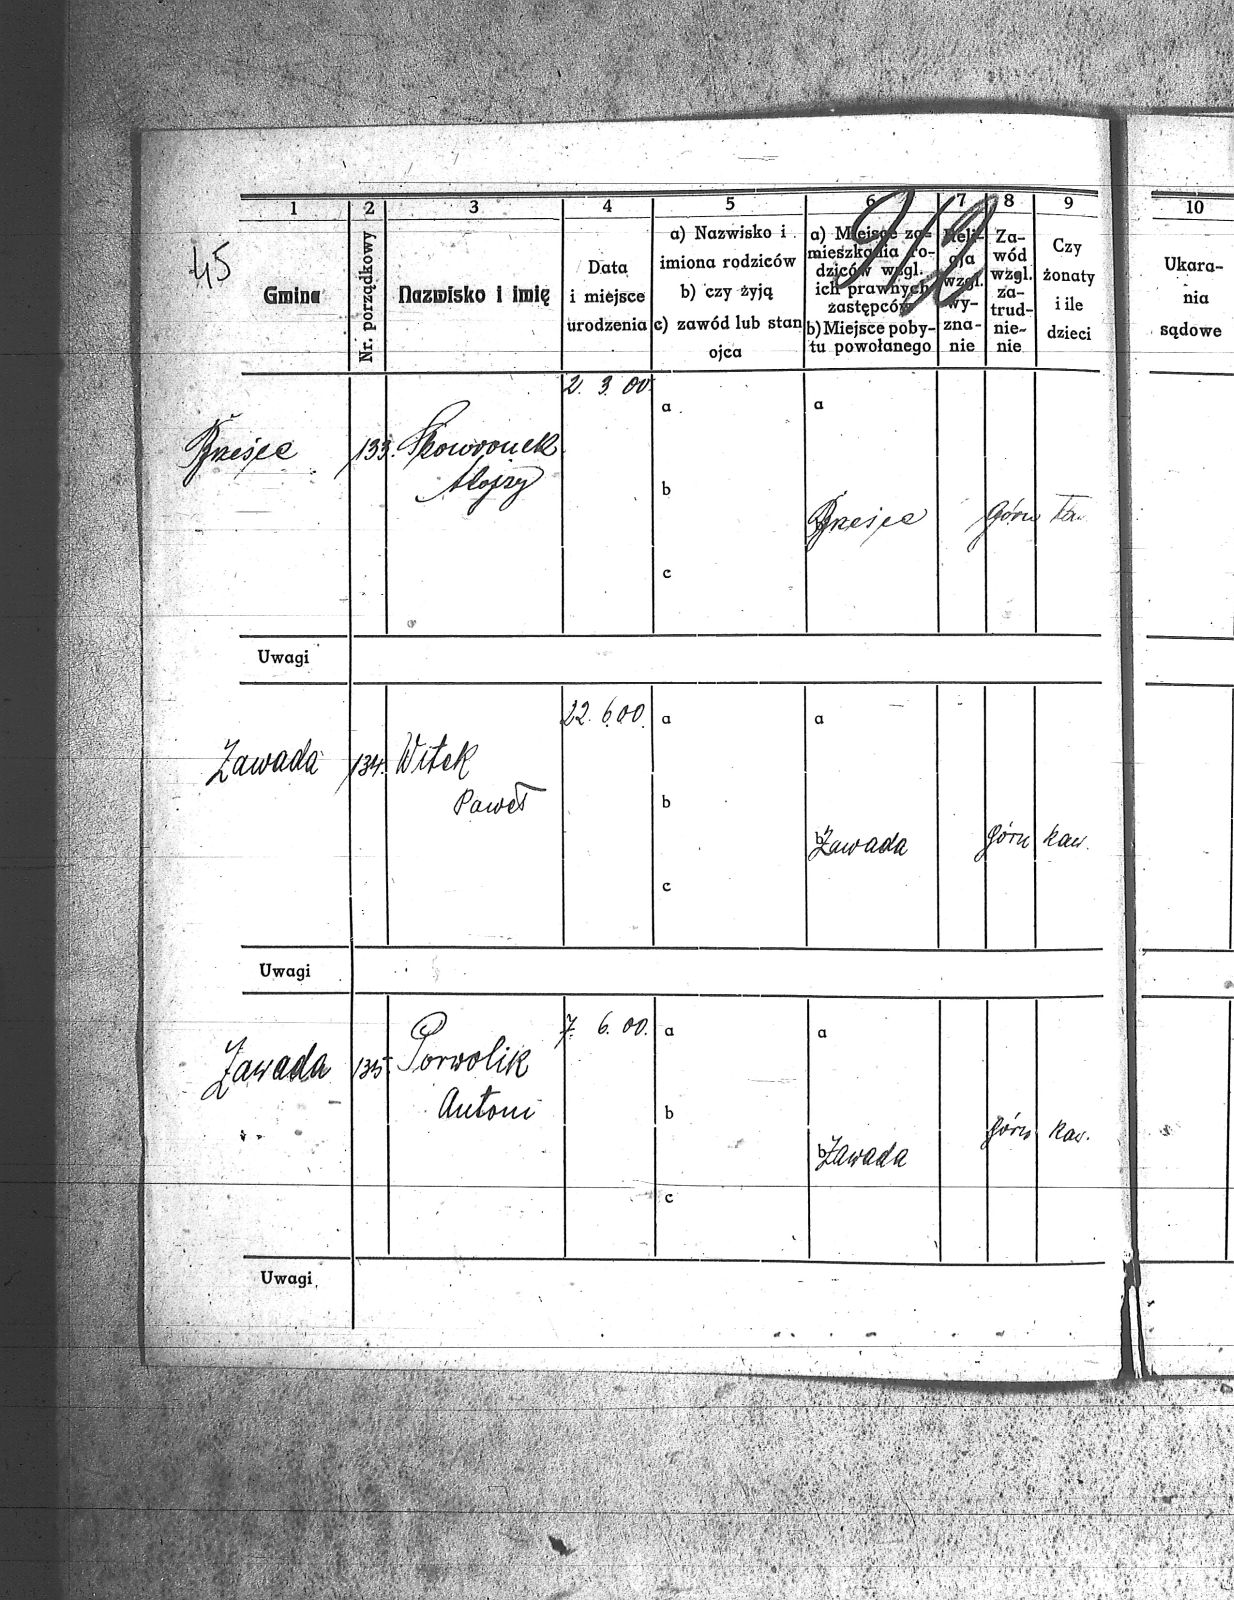 45
912
1
2
3
4
5
6
7
8
9
10
Gmina
Nr. porządkowy
Nazwisko i imię
Data
i miejsce
urodzenia
a) Nazwisko i
imiona rodziców
b) czy żyją
c) zawód lub stan
ojca
a) Miejsce za-
mieszkania ro-
dziców wzgl.
ich prawnych
zastępców
b) Miejsce poby-
tu powołanego
Reli-
gja
wzgl.
wy-
zna-
nie
Za-
wód
wzgl.
za-
trud-
nie-
nie
Czy
żonaty
i ile
dzieci
Ukara-
nia
sądowe
133. Skowronek
Alojzy
2. 3. 00.
a
b
c
a
b
górn
Uwagi
Zawada
134.
Witek
Paweł
22. 6.00.
a
b
c
a
b Zawada
górn
kaw.
Uwagi
Zawada
135.
Porwolik
Antoni
7. 6. 00.
a
b
c
a
b Zawada
górn
kaw.
Uwagi